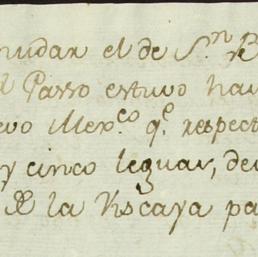 mudar el de S.n
el Passo estuvo hav
evo Mex.co q.e respect
y cinco leguas, de
de la Viscaya pa